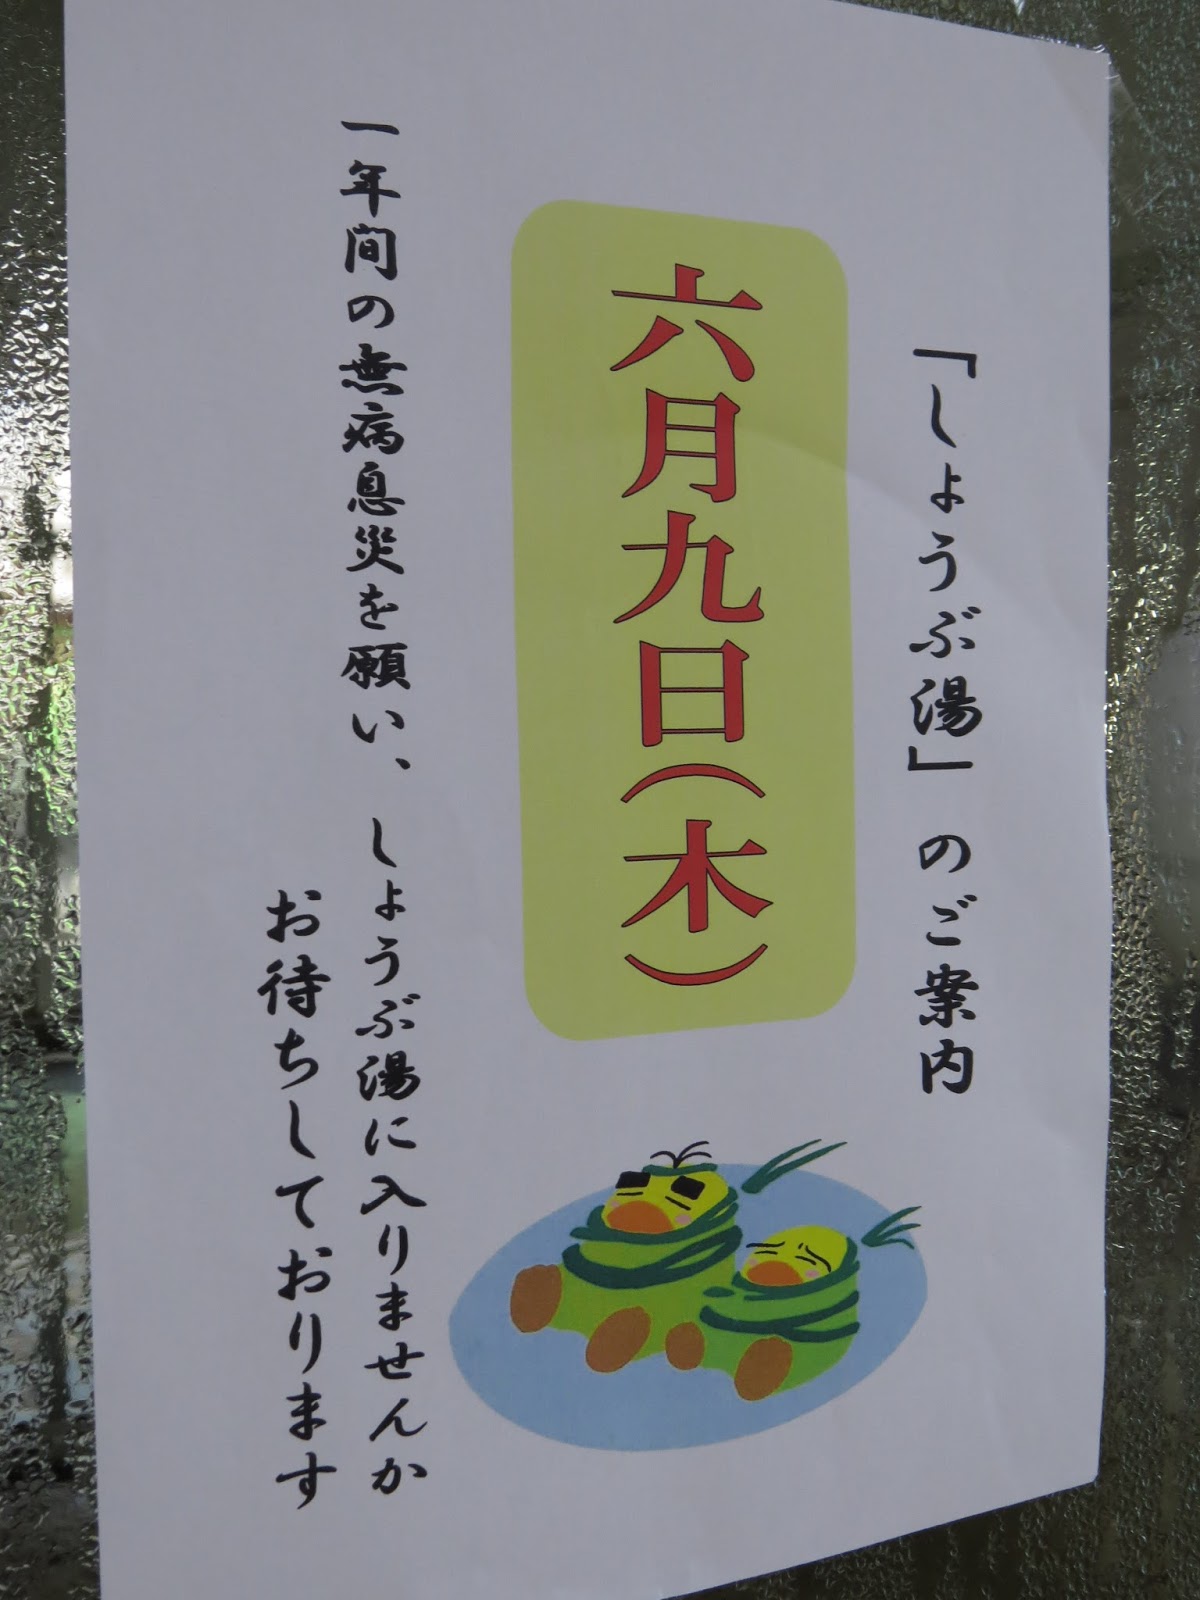 「しょうぶ湯」のご案内
六月九日(木)
一年間の無病息災を願い、しょうぶ湯に入りませんか
お待ちしております